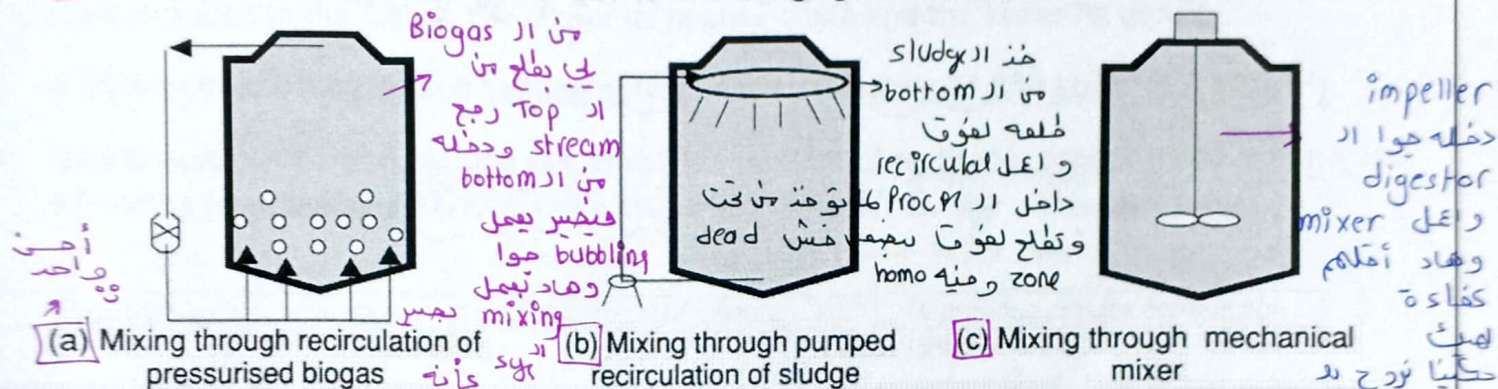 من ال Biogas
لي بطلع من
ال Top رجع
stream ودخله
من ال bottom
فيصير يعمل
bubbling جوا
وهاد بعمل
mixing بصير
ال sys كأنه
أحسن
واحد
(a) Mixing through recirculation of
pressurised biogas
خذ ال sludge
من ال bottom
طلعه لفوق
واعمل recirculat
داخل ال Proc لما توخذ من تحت
وتطلع لفوق بصير فش dead
zone ومنه homo
(b) Mixing through pumped
recirculation of sludge
impeller
دخله جوا ال
digestor
واعمل mixer
وهاد أقلهم
كفاءة
(c) Mixing through mechanical
mixer